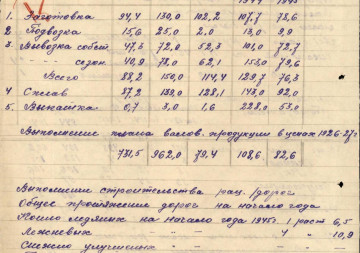 1. Заготовка 94,4 130,0 102,2 107,7 78,6
2. Подвозка 15,6 25,0 2,0 13,0 9,9
3. Вывозка собст. 47,3 72,0 52,3 101,0 72,7
-"- сезон 40,9 78,0 62,1 153,0 79,6
Всего 88,2 150,0 114,4 129,7 76,3
4 Сплав 87,2 139,0 128,1 143,0 92,0
5. Выкатка 0,7 3,0 1,6 228,0 53,0
Выполнение плана валов. продукции в ценах 1926-27г
731,5 962,0 79,4 108,6 82,6
Выполнение строительства рац. дорог
Общее протяжение дорог на начало года
на начало года 1945г. 1 раст 6,5
Лежневых 4 " 10,9
Снежно улучшенных